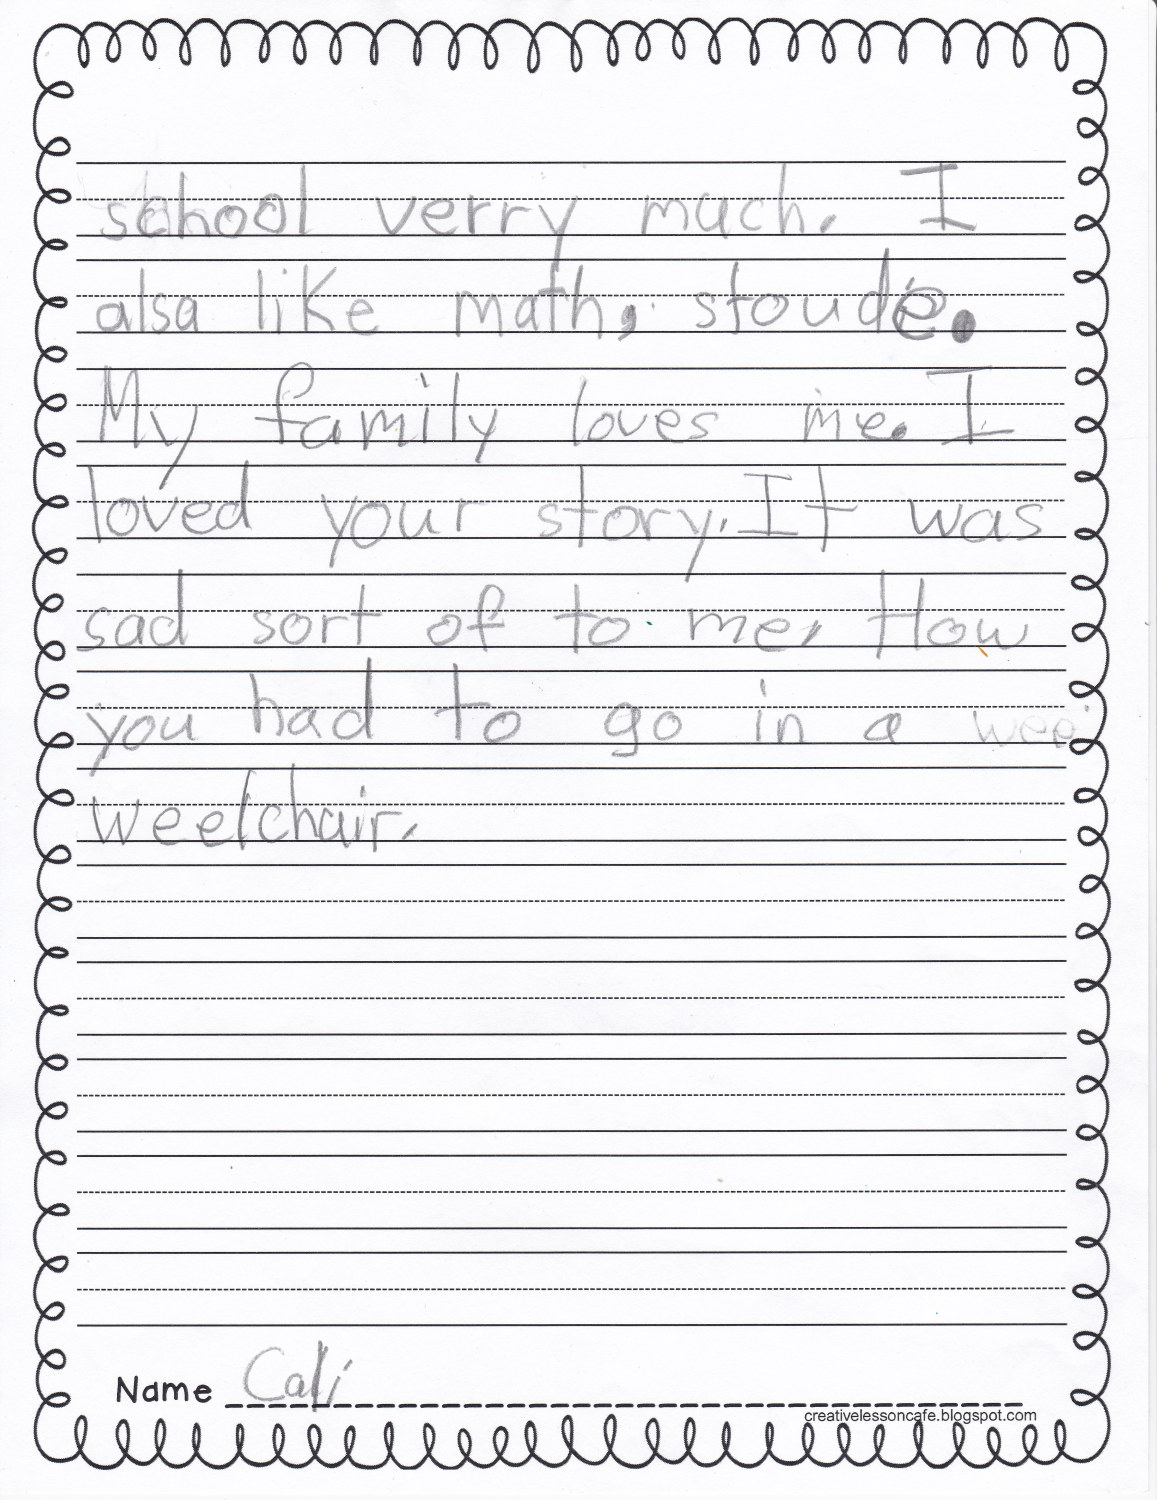 school verry much. I
alsa like math, stoude.
My family loves me. I
loved your story. It was
sad sort of to me, How
you had to go in a wee
weelchair.
Name Cali
creativelessoncafe.blogspot.com